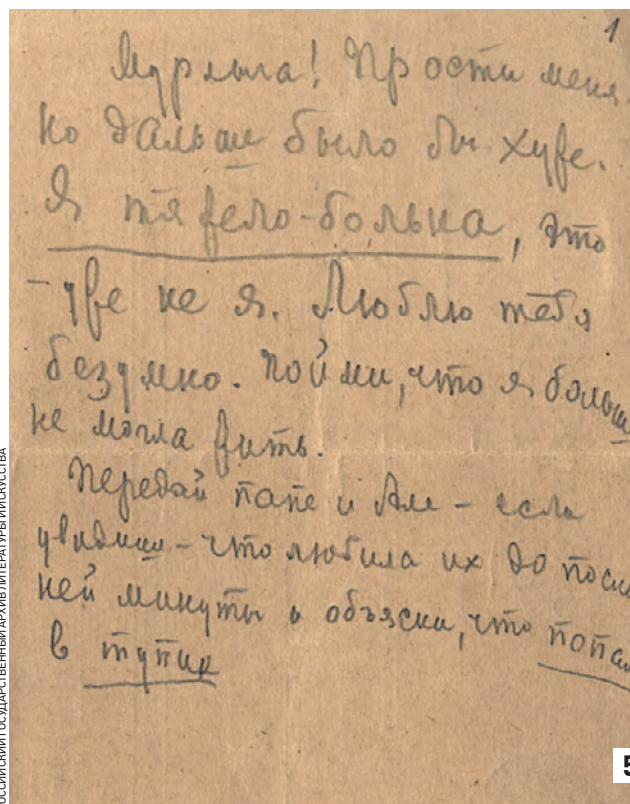 1
Мурлыга! Прости меня
но дальше было бы хуже.
Я тяжело-больна, это
– уже не я. Люблю тебя
безумно. Пойми, что я больш
не могла жить.
Передай папе и Але – если
увидишь – что любила их до посл
ней минуты и объясни, что попал
в тупик
5
ОССИЙСКИЙ ГОСУДАРСТВЕННЫЙ АРХИВ ЛИТЕРАТУРЫ И ИСКУССТВА